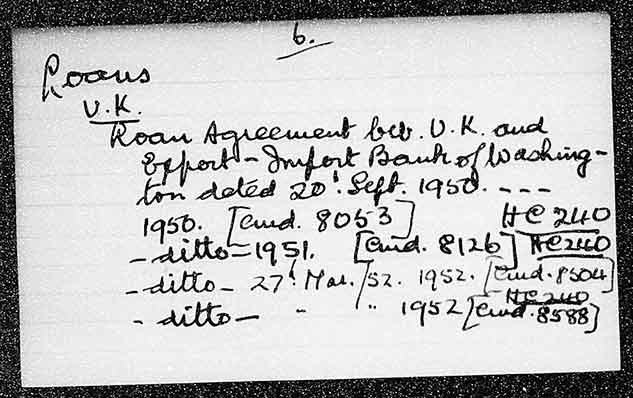 6.
Loans
U.K.
Loan Agreement bet. U.K. and
Export-Import Bank of Washing-
ton dated 20' Sept. 1950. ---
1950. [Cmd. 8053] HC 240
- ditto - 1951. [Cmd. 8126] HC 240
- ditto - 27' Mar. /52. 1952. [Cmd. 8504]
HC 240
- ditto - " " 1952 [Cmd. 8588]